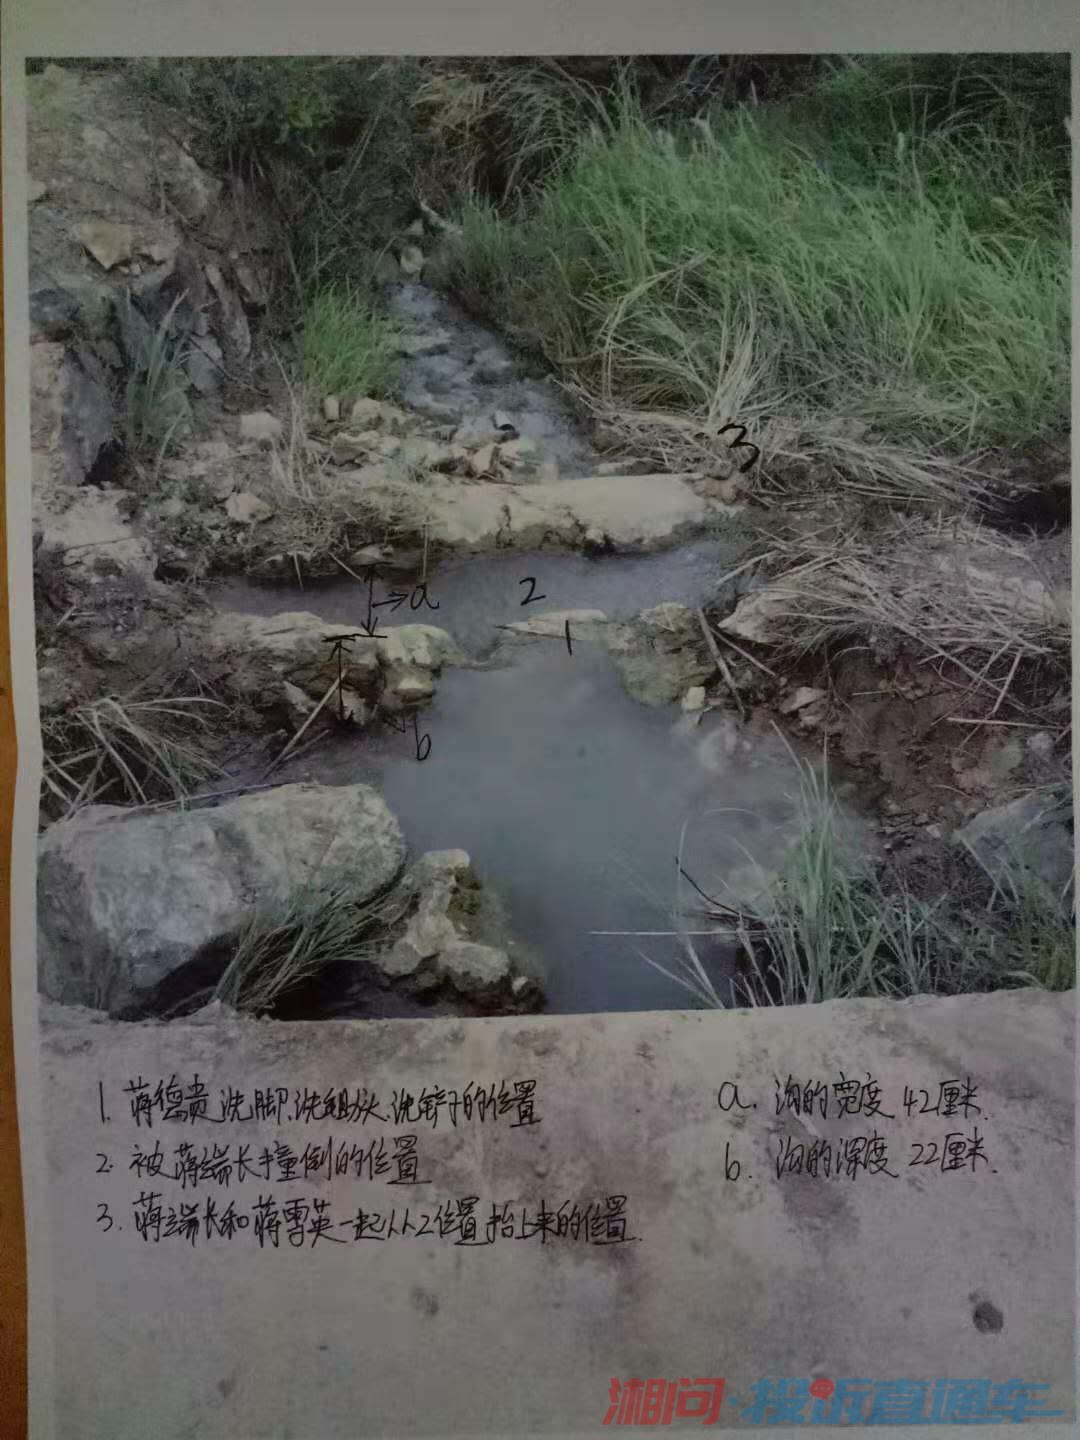 3
a
2
1
b
1. 蒋德贵洗脚、洗锄头、洗铲子的位置
a. 沟的宽度 42厘米.
2. 被蒋端长撞倒的位置
b. 沟的深度 22厘米.
3. 蒋端长和蒋雪英一起从2位置抬上来的位置.
湘问·投诉直通车